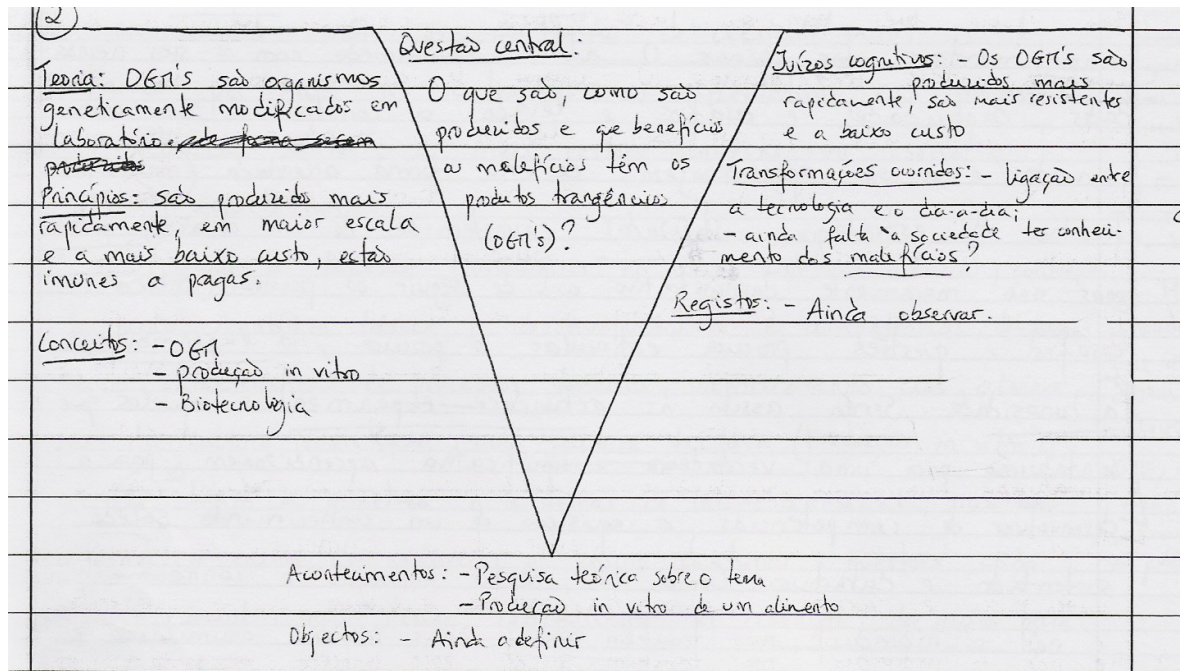 (2)
Teoria: OGM's são organismos
geneticamente modificados em
laboratório.
Princípios: São produzidos mais
rapidamente, em maior escala
e a mais baixo custo, estão
imunes a pragas.
Conceitos: - OGM
- produção in vitro
- Biotecnologia
Questão central:
O que são, como são
produzidos e que benefícios
ou malefícios têm os
produtos trangénicos
(OGM's)?
Juízos cognitivos: - Os OGM's são
produzidos mais
rapidamente, são mais resistentes
e a baixo custo
Transformações ocorridas: - ligação entre
a tecnologia e o dia-a-dia;
- ainda falta à sociedade ter conheci-
mento dos malefícios?
Registos: - Ainda observar.
Acontecimentos: - Pesquisa teórica sobre o tema
- Produção in vitro de um alimento
Objectos: - Ainda a definir